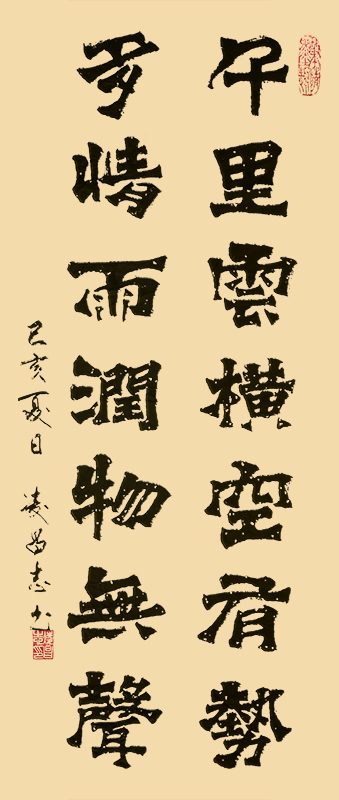 千里雲橫空有勢
多情雨潤物無聲
己亥夏日 凌昌志书